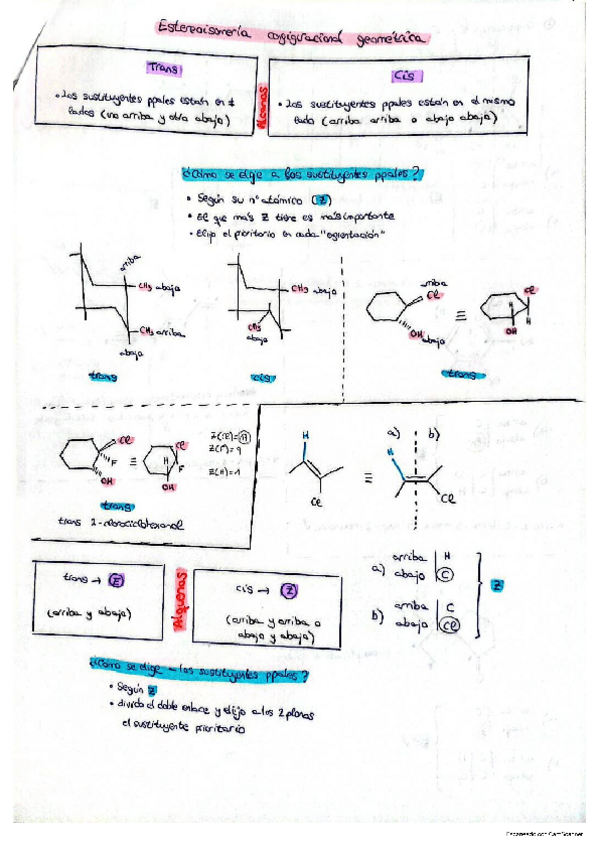 Estereoisomería configuracional geométrica
Trans
• Los sustituyentes ppales están en ≠
lados (uno arriba y otro abajo)
Alcanos
Cis
• Los sustituyentes ppales están en el mismo
lado (arriba arriba o abajo abajo)
¿Cómo se elige a los sustituyentes ppales?
• Según su nº atómico (Z)
• El que más Z tiene es más importante
• Elijo el prioritario en cada "orientación"
arriba
CH3 abajo
CH3 arriba
abajo
trans
CH3 abajo
CH3
abajo
cis
arriba
Cl
OH abajo
≡
Cl
H
H
OH
trans
Cl
F
OH
≡
Cl
H
F
OH
Z(Cl)=17
Z(F)=9
Z(H)=1
trans
trans 2-clorociclohexanol
H
Cl
≡
a) b)
H
Cl
trans → E
(arriba y abajo)
Alquenos
cis → Z
(arriba y arriba o
abajo y abajo)
a) arriba H
abajo C
b) arriba C
abajo Cl
Z
¿Cómo se elige a los sustituyentes ppales?
• Según Z
• divido el doble enlace y elijo a los 2 planos
el sustituyente prioritario
Escaneado con CamScanner